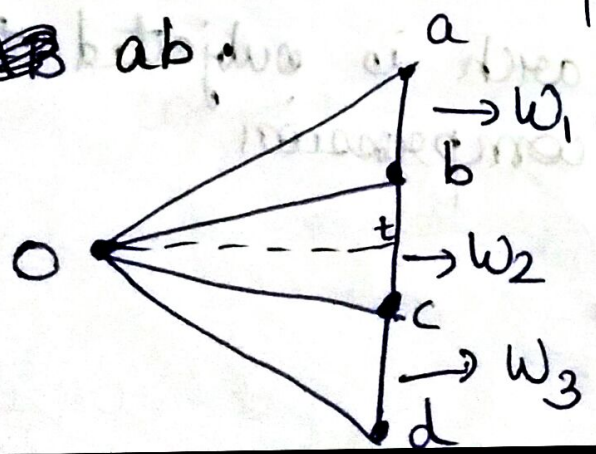 ab.
a
→ W₁
b
t
O
→ W₂
c
→ W₃
d